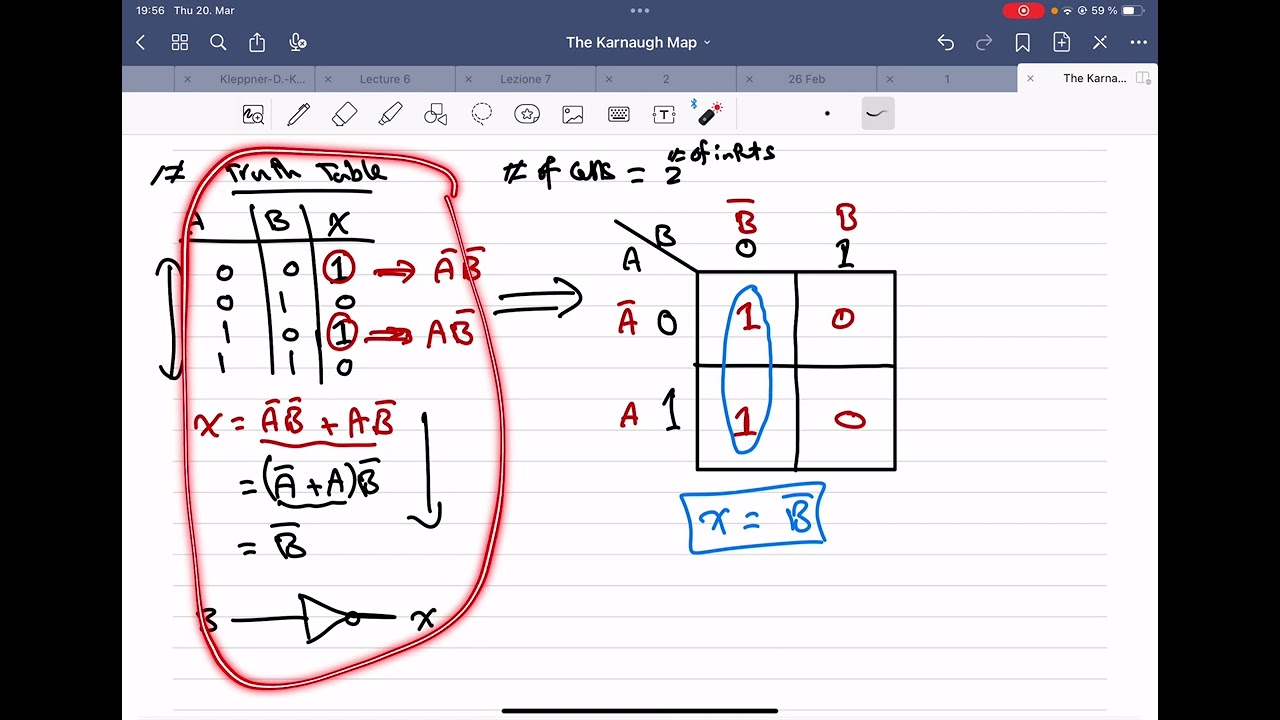 19:56 Thu 20. Mar
59 %
The Karnaugh Map
Kleppner-D.-K...
Lecture 6
Lezione 7
2
26 Feb
1
The Karna...
1# Truth Table
A B X
0 0 1 ⇒ A̅ B̅
0 1 0
1 0 1 ⇒ A B̅
1 1 0
x = A̅ B̅ + A B̅
= (A̅ + A) B̅
= B̅
B x
# of cells = 2 # of inputs
B̅ B
B 0 1
A
A̅ 0 1 0
A 1 1 0
x = B̅